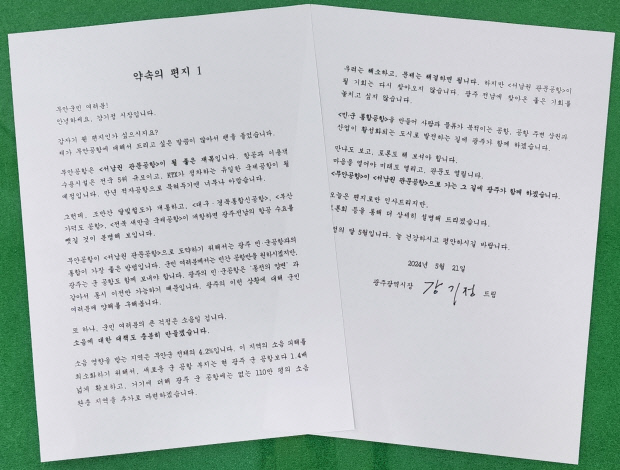 약속의 편지 1
무안군민 여러분!
안녕하세요, 강기정 시장입니다.
갑자기 웬 편지인가 싶으시지요?
제가 무안공항에 대해서 드리고 싶은 말씀이 많아서 펜을 들었습니다.
무안공항은 <서남권 관문공항>이 될 좋은 재목입니다. 활주로와 이용객
수용시설은 전국 5위 규모이고, KTX가 정차하는 유일한 국제공항이 될
예정입니다. 만년 적자공항으로 묵혀두기엔 너무나 아깝습니다.
그런데, 조만간 달빛철도가 개통하고, <대구·경북통합신공항>, <부산
가덕도 공항>, <전북 새만금 국제공항>이 개항하면 광주전남의 항공 수요를
뺏길 것이 분명해 보입니다.
무안공항이 <서남권 관문공항>으로 도약하기 위해서는 광주 민·군공항과의
통합이 가장 좋은 방법입니다. 군민 여러분께서는 민간 공항만을 원하시겠지만,
광주는 군 공항도 함께 보내야 합니다. 광주의 민·군공항은 '동전의 양면'과
같아서 동시 이전만 가능하기 때문입니다. 광주의 이런 상황에 대해 군민
여러분께 양해를 구해봅니다.
또 하나, 군민 여러분의 큰 걱정은 소음일 겁니다.
소음에 대한 대책도 충분히 만들겠습니다.
소음 영향을 받는 지역은 무안군 전체의 4.2%입니다. 이 지역의 소음 피해를
최소화하기 위해서, 새로운 군 공항 부지는 현 광주 군 공항보다 1.4배
넓게 확보하고, 거기에 더해 광주 군 공항에는 없는 110만 평의 소음
완충 지역을 추가로 마련하겠습니다.
우려는 해소하고, 문제는 해결하면 됩니다. 하지만 <서남권 관문공항>이
될 기회는 다시 찾아오지 않습니다. 광주 전남에 찾아온 좋은 기회를
놓치고 싶지 않습니다.
<민·군 통합공항>을 만들어 사람과 물류가 북적이는 공항, 공항 주변 상권과
산업이 활성화되는 도시로 발전하는 길에 광주가 함께 하겠습니다.
만나도 보고, 토론도 해 보셔야 합니다.
마음을 열어야 미래도 열리고, 관문도 열립니다.
<무안공항>이 <서남권 관문공항>으로 가는 그 길에 광주가 함께 하겠습니다.
오늘은 편지로만 인사드리지만,
토론회 등을 통해 더 상세히 설명해 드리겠습니다.
정의 달 5월입니다. 늘 건강하시고 평안하시길 바랍니다.
2024년 5월 21일
광주광역시장 강기정 드림